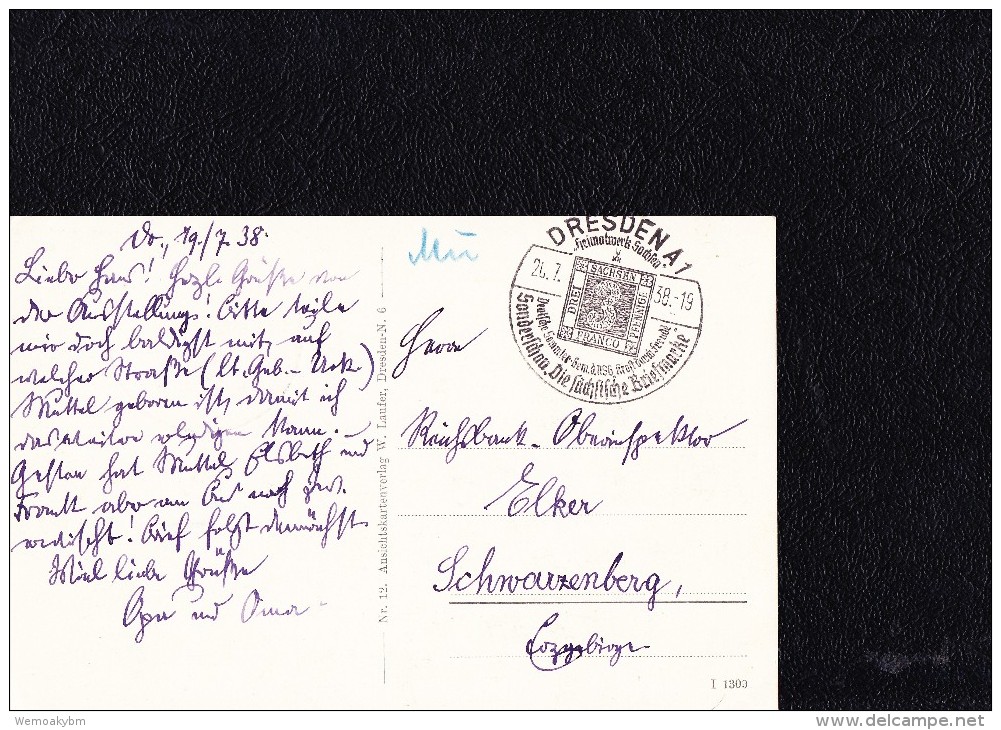 Do., 19./7. 38.
Liebe Hans! Herzl. Grüße von
der Ausstellung! Bitte teile
mir doch baldigst mit, auf
welcher Straße (lt. Geb.-Urk.)
Muttel geboren ist, damit ich
das weitere erledigen kann. –
Gestern hat Muttel Elsbeth und
aber am noch
wischt! Brief folgt demnächst
Viel liebe Grüße
Opa und Oma
Nr. 12. Ansichtskartenverlag W. Laufer, Dresden-N. 6
Mü
DRESDEN A1
Heimatwerk Sachsen
26.7.38.-19
SACHSEN
DREI
PFENNIGE
FRANCO
Deutsche Sammler-Gem. d. NSG. Kraft durch Freude
Sonderschau „Die sächsische Briefmarke"
Herrn
Reichsbank-Oberinspektor
Elker
Schwarzenberg,
Erzgebirge
I 1300
Wemoakybm
delcampe.net